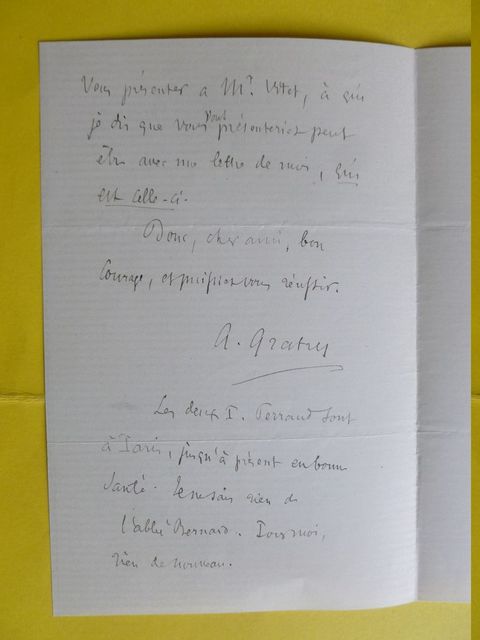 Vous présenter a Mr. Vitet, à qui
je dis que vous vous présenteriez peut
être avec une lettre de moi, qui
est celle-ci.
Donc, cher ami, bon
Courage, et puissiez vous réussir.
A. Gratry
Les deux P. Perraud sont
à Paris, jusqu'à présent en bonne
Santé. Je ne sais rien de
l'abbé Bernard. Pour moi,
rien de nouveau.